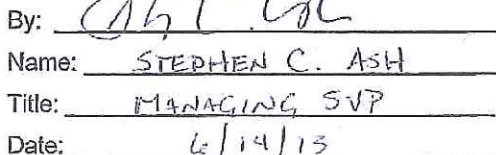 By:
Name: STEPHEN C. ASH
Title: MANAGING SVP
Date: 6/14/13